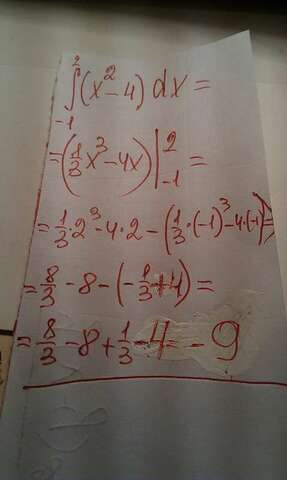 ∫₋₁² (x² - 4) dx =
= (1/3 x³ - 4x) |₋₁² =
= 1/3 · 2³ - 4 · 2 - (1/3 · (-1)³ - 4 · (-1)) =
= 8/3 - 8 - (-1/3 + 4) =
= 8/3 - 8 + 1/3 - 4 = - 9